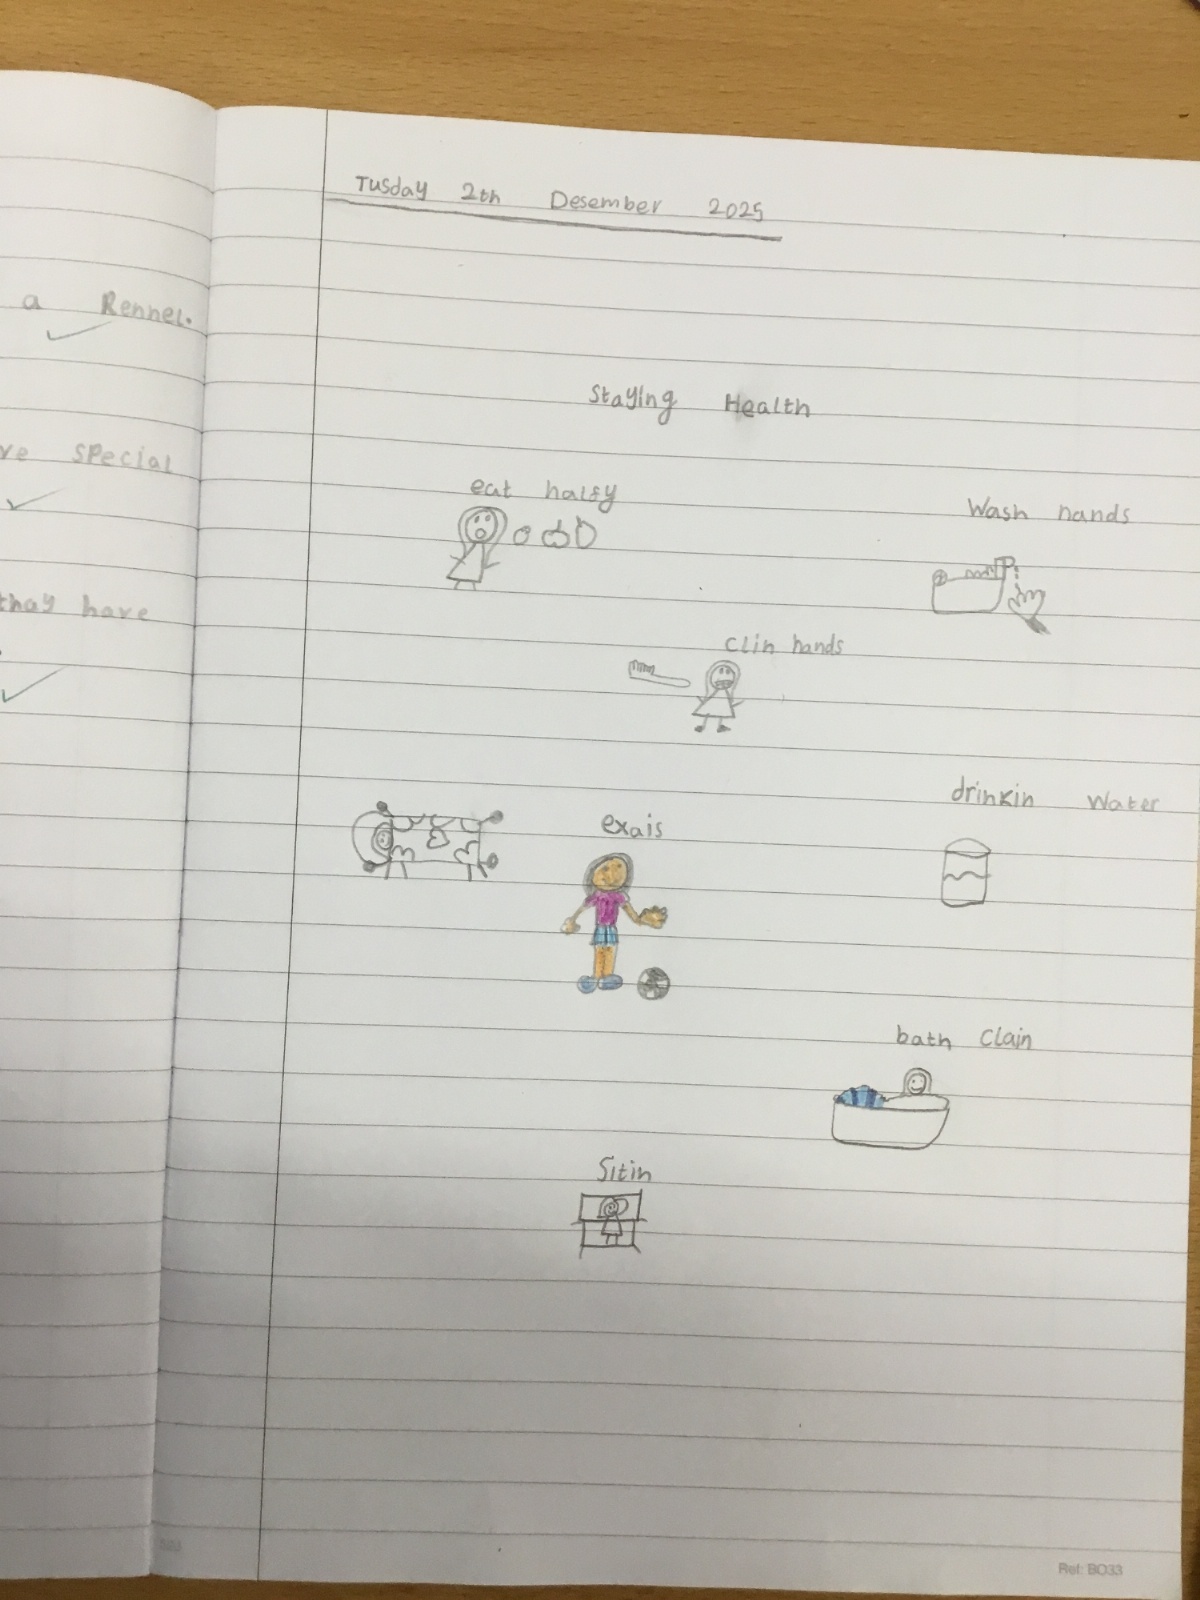 a Rennel.
ve special
thay have
Tusday 2th Desember 2025
Staying Health
eat halfy
Wash hands
Clin hands
drinkin Water
exais
bath Clain
Sitin
Ref: BO33